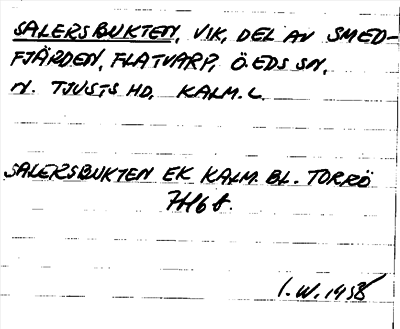 SALERSBUKTEN, VIK, DEL AV SMED-
FJÄRDEN, FLATVARP, Ö. EDS SN,
N. TJUSTS HD, KALM. L.
SALERSBUKTEN EK KALM. BL. TORRÖ
7H6f.
I.W. 1958